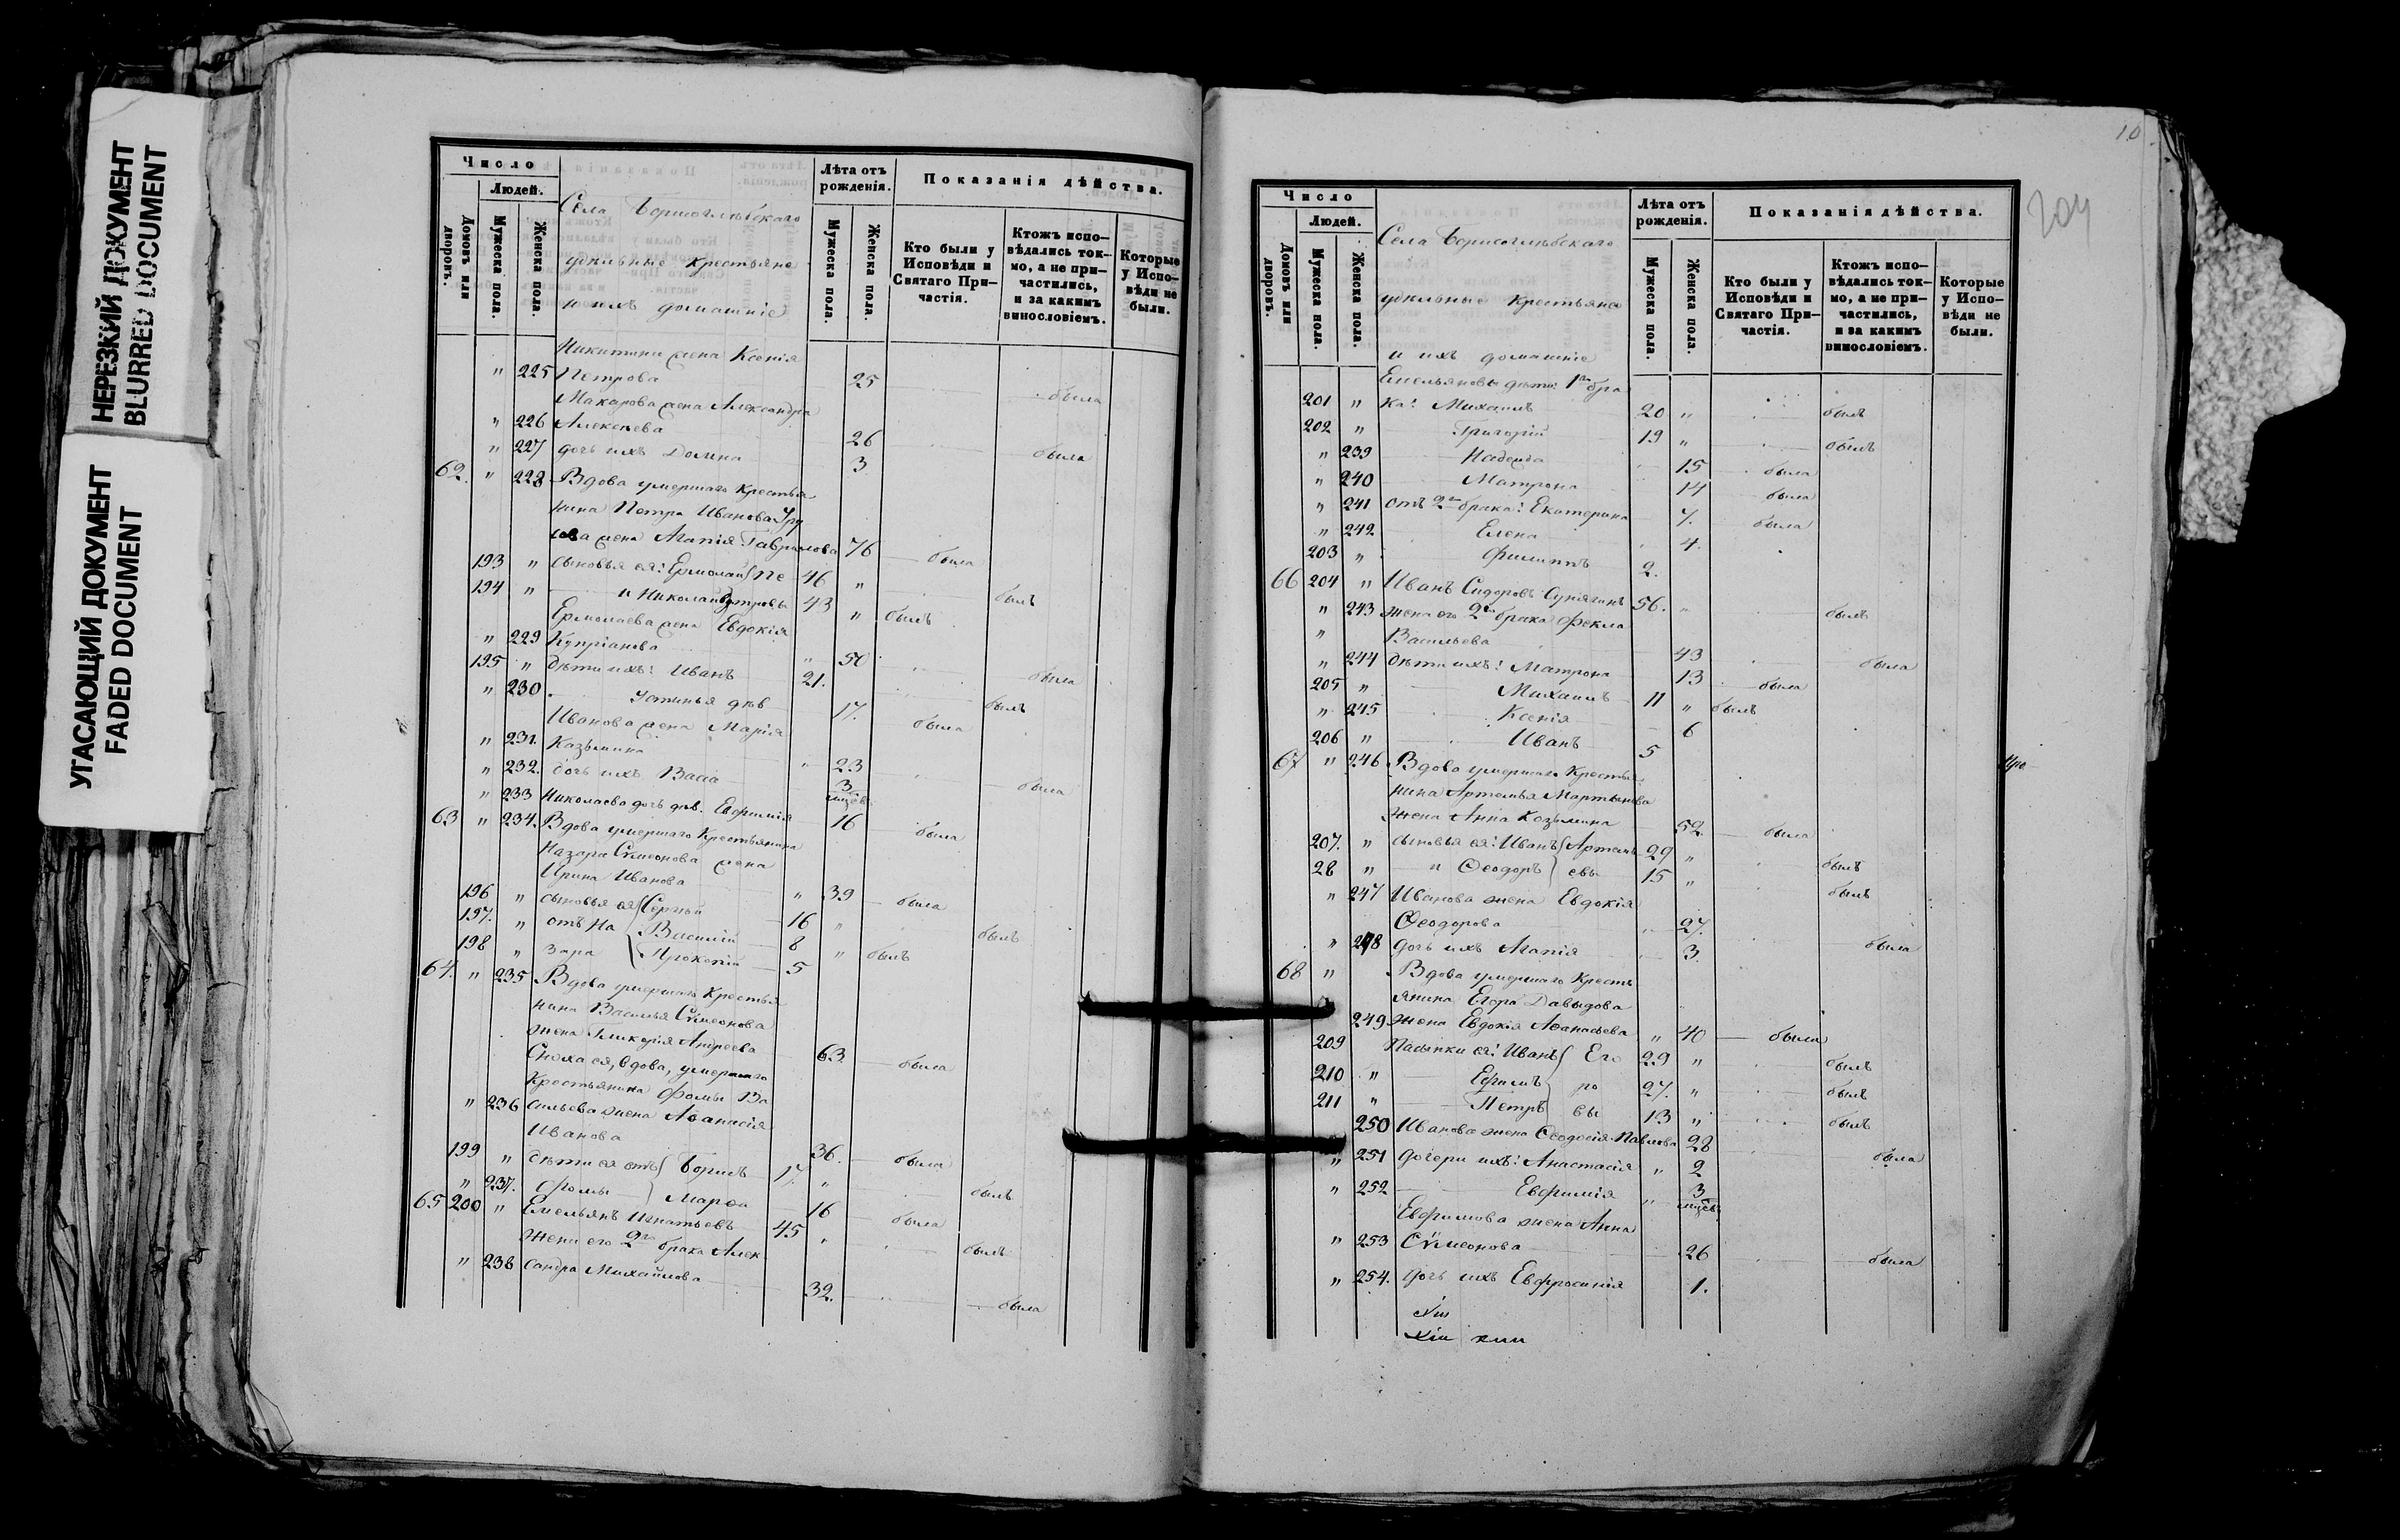 НЕРЕЗКИЙ ДОКУМЕНТ
BLURRED DOCUMENT
УГАСАЮЩИЙ ДОКУМЕНТ
FADED DOCUMENT
Число
Людей.
Домовъ или дворовъ.
Мужеска пола.
Женска пола.
Села Борисоглѣбскаго
удѣльные крестьяне
и ихъ домашніе
Лѣта отъ рожденія.
Мужеска пола.
Женска пола.
Показанія дѣйства.
Кто были у Исповѣди и Святаго Причастія.
Ктожъ исповѣдались токмо, а не причастились, и за какимъ винословіемъ.
Которые у Исповѣди не были.
Никитина жена Ксенія
" 225 Петрова 25 была
Макарова жена Александра
" 226 Алексѣева 26 была
" 227 дочь ихъ Домна 3
62. " 228 Вдова умершаго крестья
нина Петра Иванова
жена Агапія Гаврилова 76 была
193 " сыновья ея: Ермолай Пе 46 " былъ
194 " и Николай тровы 43 " былъ
Ермолаева жена Евдокія
" 229 Купріанова " 50 была
195 " дѣти ихъ: Иванъ 21. былъ
" 230. Устинья дѣв 17. была
Иванова жена Марія
" 231. Казьмина " 23 была
" 232. дочь ихъ Васса 3 мцѣв
" 233 Николаева дочь дѣв. Евфимія 16 была
63 " 234. Вдова умершаго крестьянина
Назара Сѵмеонова жена
Ирина Иванова " 39 была
196 " сыновья ея Сергѣй 16 " былъ
197. " отъ На Василій 8 " былъ
198 " зара Прокопій 5
64. " 235 Вдова умершаго крестья
нина Василья Сѵмеонова
жена Гликерія Андреева 63. была
Сноха ея, вдова, умершаго
крестьянина Фомы Ва
" 236 сильева жена Аѳанасія
Иванова 36. была
199 " дѣти ея отъ Борисъ 17. " былъ
" 237. Фомы Марѳа 16 была
65 200 " Емельянъ Игнатьевъ 45 " былъ
жена его 2го брака Алек
" 238 сандра Михайлова 32. была
10
204
Число
Людей.
Домовъ или дворовъ.
Мужеска пола.
Женска пола.
Села Борисоглѣбскаго
удѣльные крестьяне
и ихъ домашніе
Лѣта отъ рожденія.
Мужеска пола.
Женска пола.
Показанія дѣйства.
Кто были у Исповѣди и Святаго Причастія.
Ктожъ исповѣдались токмо, а не причастились, и за какимъ винословіемъ.
Которые у Исповѣди не были.
Емельяновы дѣти 1го бра
201 " ка: Михаилъ 20 " былъ
202 " Григорій 19 " былъ
" 239 Надежда 15 была
" 240 Матрона 14 была
" 241 отъ 2го брака: Екатерина 7. была
" 242 Елена 4.
203 " Филиппъ 2.
66 204 " Иванъ Сидоровъ 56. " былъ
" 243 жена его 2го брака Фекла
" Васильева 43 была
" 244 дѣти ихъ: Матрона 13 была
205 " Михаилъ 11 " былъ
" 245 Ксенія 6
206 " Иванъ 5
67 " 246 Вдова умершаго крестья
нина Артемья Мартынова
жена Анна Козьмина 52. была
207. " сыновья ея: Иванъ Артемь 29 " былъ
28 " и Ѳеодоръ евы 15 " былъ
" 247 Иванова жена Евдокія
Ѳеодорова 27. была
" 248 дочь ихъ Агапія 3.
68 " Вдова умершаго кресть
янина Егора Давыдова
249 жена Евдокія Аѳанасьева " 40 была
209 Пасынки ея: Иванъ Его 29 " былъ
210 " Ефимъ ро 27. " былъ
211 " Петръ вы 13 " былъ
250 Иванова жена Ѳеодосія Павлова 28 была
" 251 дочери ихъ: Анастасія " 2
" 252 Евфимія " 3 мцѣв
Евфимова жена Анна
" 253 Сѵмеонова 26 была
" 254. дочь ихъ Евфросинія 1.